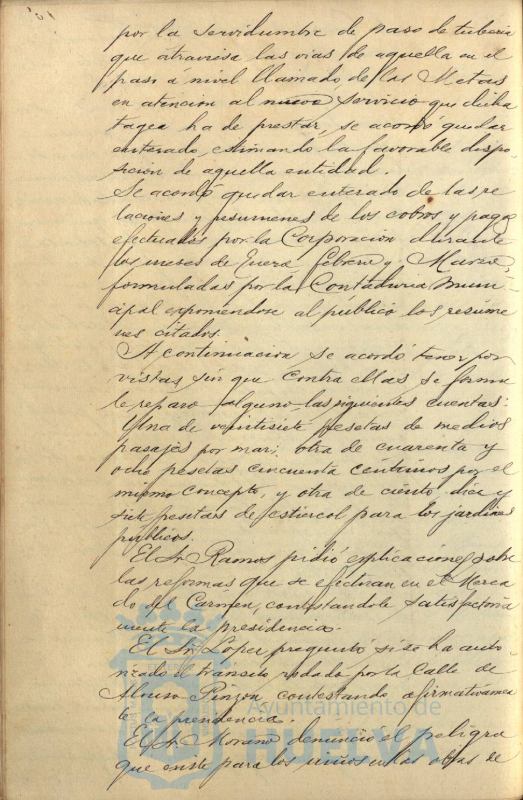 por la servidumbre de paso de tuberia
que atraviesa las vias de aquella en el
paso á nivel llamado de las Metas
en atencion al nuevo servicio que dicha
tagea ha de prestar, se acordó quedar
enterado, estimando la favorable dispo-
sicion de aquella entidad.
Se acordó quedar enterado de las re
laciones y resumenes de los cobros y pagos
efectuados por la Corporacion durante
los meses de Enero Febrero y Marzo,
formuladas por la Contaduria muni-
cipal exponiendose al público los resúme
nes citados.
A continuacion se acordó tener por
vistas sin que contra ellas se formu
le reparo alguno las siguientes cuentas:
Una de veintisiete pesetas de medios
pasajes por mar; otra de cuarenta y
ocho pesetas cincuenta centimos por el
mismo concepto, y otra de ciento diez y
siete pesetas de estiercol para los jardines
públicos.
El Sr. Ramos pidió explicaciones sobre
las reformas que se efectuan en el Merca
do del Carmen, contestandole satisfactoria
mente la presidencia.
El Sr. López preguntó si se ha auto-
rizado el transito rodado por la Calle de
Alonso Pinzon contestando afirmativamen
te la presidencia.
El Sr. Morano denunció el peligro
que existe para los niños en las obras de
Ayuntamiento de
HUELVA